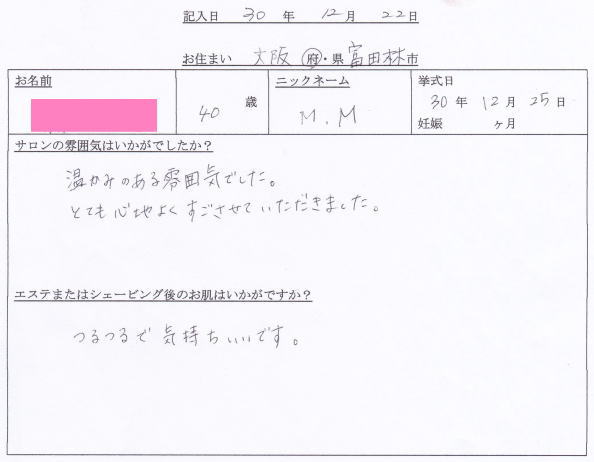 記入日 30 年 12 月 22 日
お住まい 大阪 府・県 富田林 市
お名前
40 歳
ニックネーム
M.M
挙式日
30 年 12 月 25 日
妊娠 ヶ月
サロンの雰囲気はいかがでしたか？
温かみのある雰囲気でした。
とても心地よくすごさせていただきました。
エステまたはシェービング後のお肌はいかがですか？
つるつるで気持ちいいです。